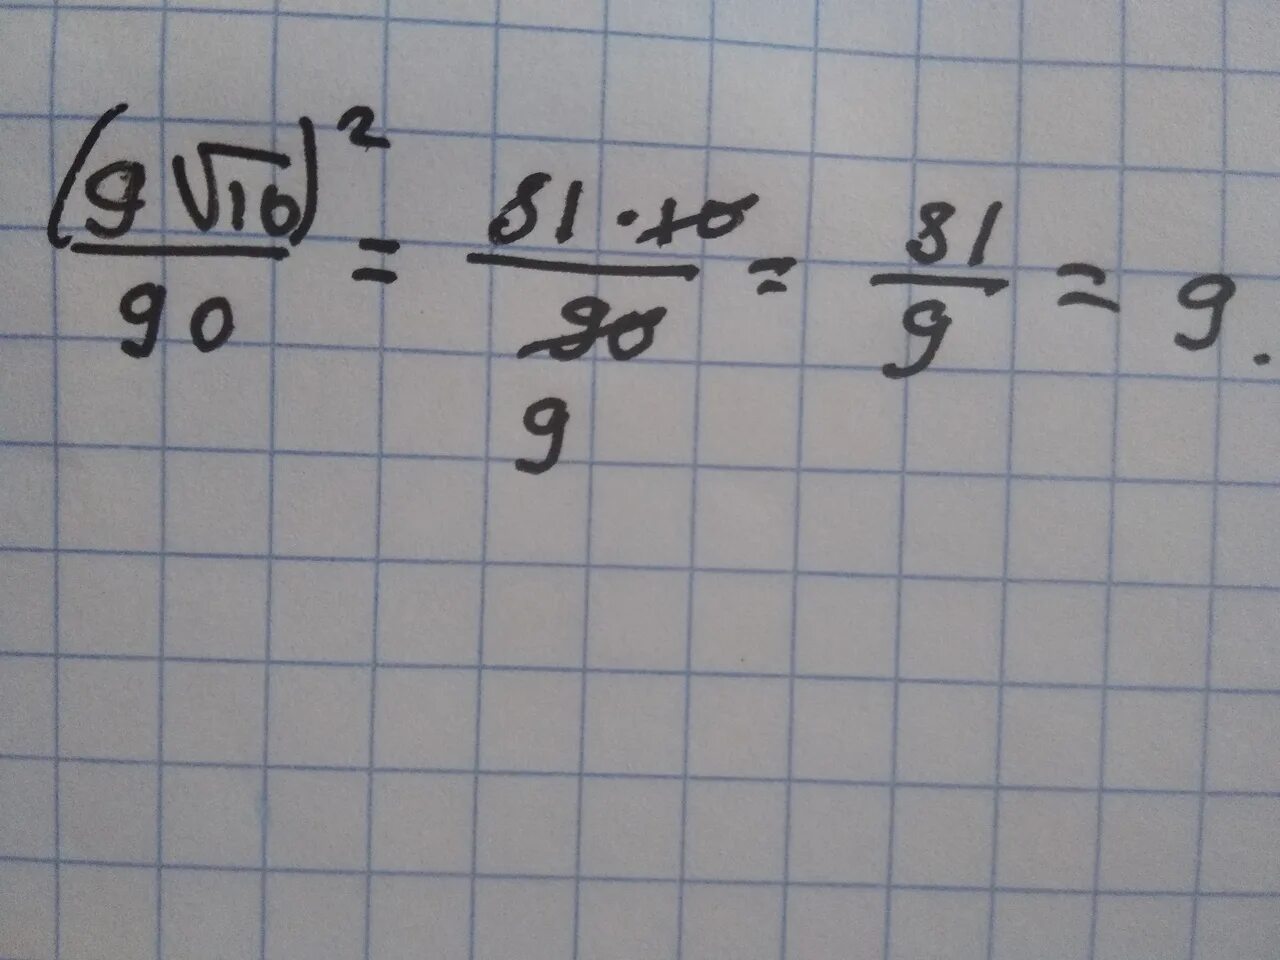 (9√10)² / 90 = 81 · 10 / 90 = 81 / 9 = 9.
9